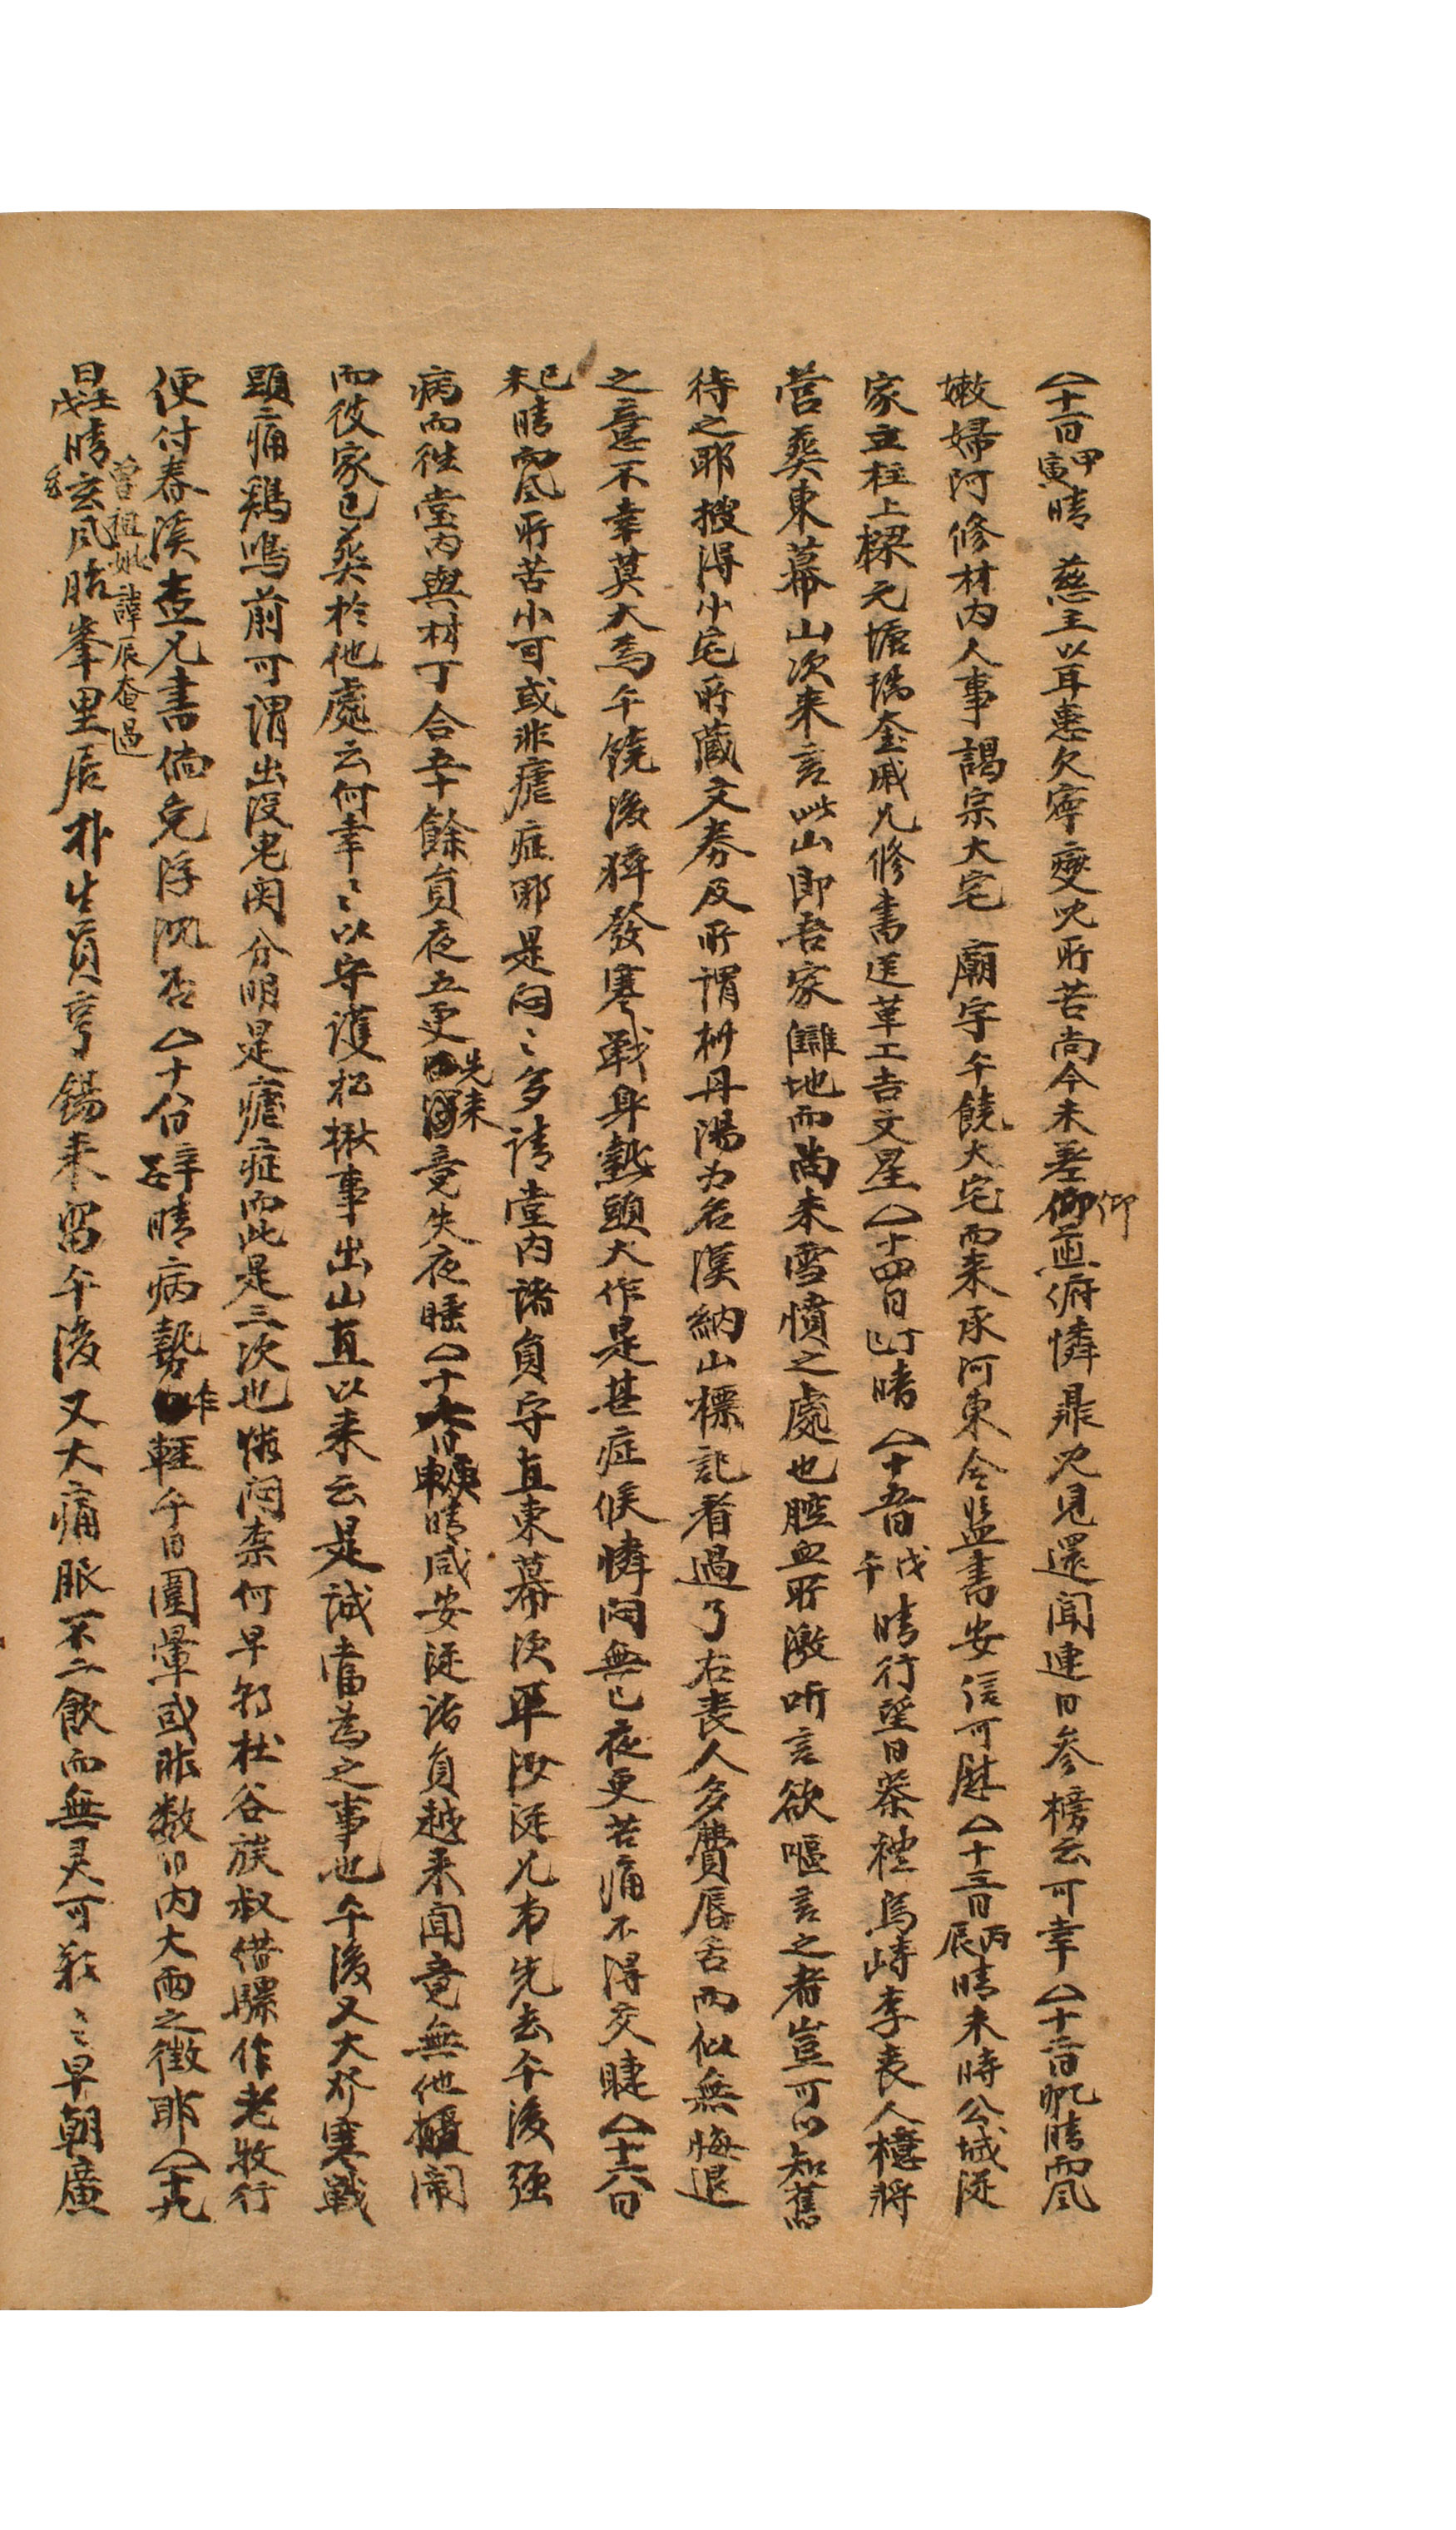 十一日甲寅晴 慈主以耳患欠寧夔兒所苦尚今未差仰悶俯憐鼎兒見還聞連日參榜云可幸十二日乙卯晴而風
嫩婦阿修村內人事謁宗大宅 廟字午饒大宅而來承河東令監書安信可慰十三日丙辰晴未時公城從
家立柱上樑元塘瑞奎戚兄修書送革工吉文星十四日丁巳晴十五日戊午晴行望日茶禮烏峙李喪人檍將
營葬東幕山次來言此山即吾家讎地而尚未雪憤之處也腔血所激听言欲嘔言之者豈可以知舊
待之耶搜得小宅所藏文券及所謂柄丹湯為名漢納山標記看過了右喪人多費唇舌而似無悔退
之意不幸莫大焉午饒後猝發寒戰身熱頭大作是甚症候憐悶無已夜更苦痛不得交睫十六日
己未晴而風所苦小可或非瘧症耶是悶〻多請堂內諸員守直東幕次平汝從兄弟先去午後强
病而往堂內與村丁合五十餘員夜五更先來 竟失夜睡十七日庚申晴咸安從諸員越來聞竟無他擾鬧
而彼家已葬於他處云何幸〻以守護松楸事出山直以來云是誠當為之事也午後又大發寒戰
頭痛鷄鳴前可謂出沒鬼關分明是瘧症而此是三次也憐悶柰何早朝杜谷族叔借騾作老牧行
便付春溪查兄書倘免浮沉否十八日辛酉晴病勢昨輕午日圍暈或非數日內大雨之徵耶十九
曾祖妣諱辰奄過
日壬戌晴玄風 峯里居朴生員亨錫來留午後又大痛脈不二飲而無灵可歎〻早朝廣